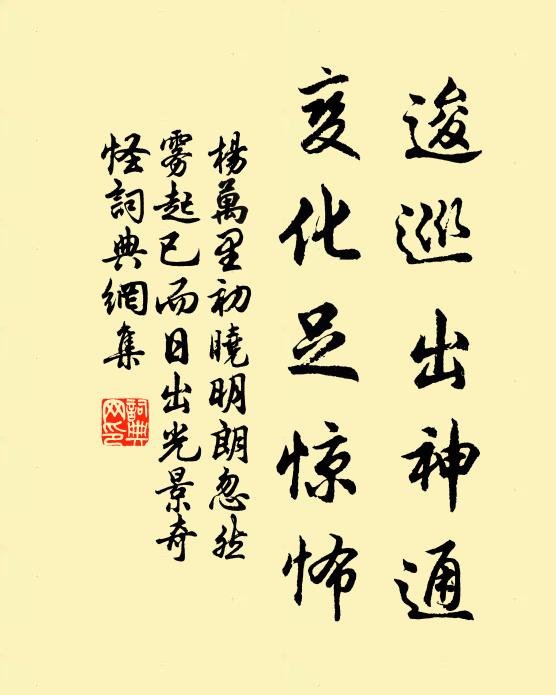 逡巡出神通
变化足惊怖
楊萬里初曉明朗忽然
雾起已而日出光景奇
怪詞典網集
詞典
网印